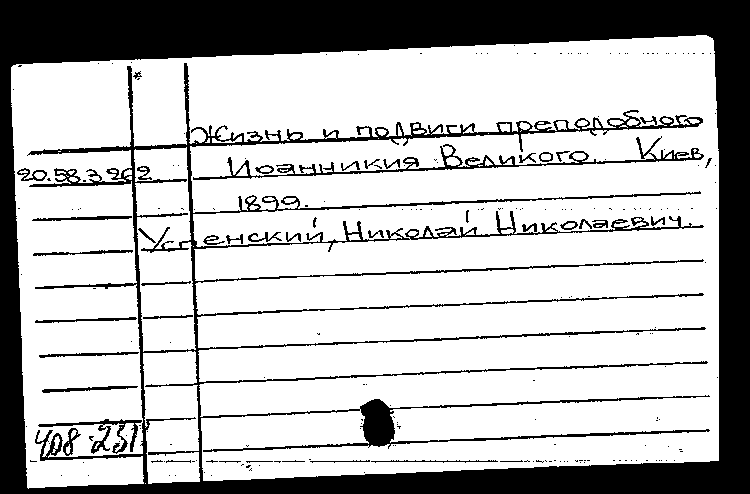 *
Жизнь и подвиги преподобного
20.58.3.262 Иоанникия Великого. Киев,
1899.
Успенский, Николай Николаевич.
408-231